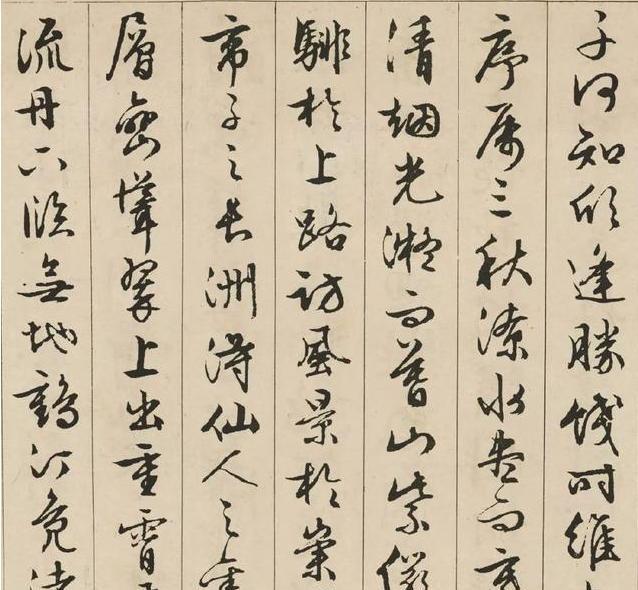 子何知欣逢勝餞時維
序属三秋潦水盡而寒
清烟光凝而暮山紫儼
騑於上路訪風景於崇
帝子之長洲得仙人之舊
層巒聳翠上出重霄
流丹下臨無地鶴汀鳧渚